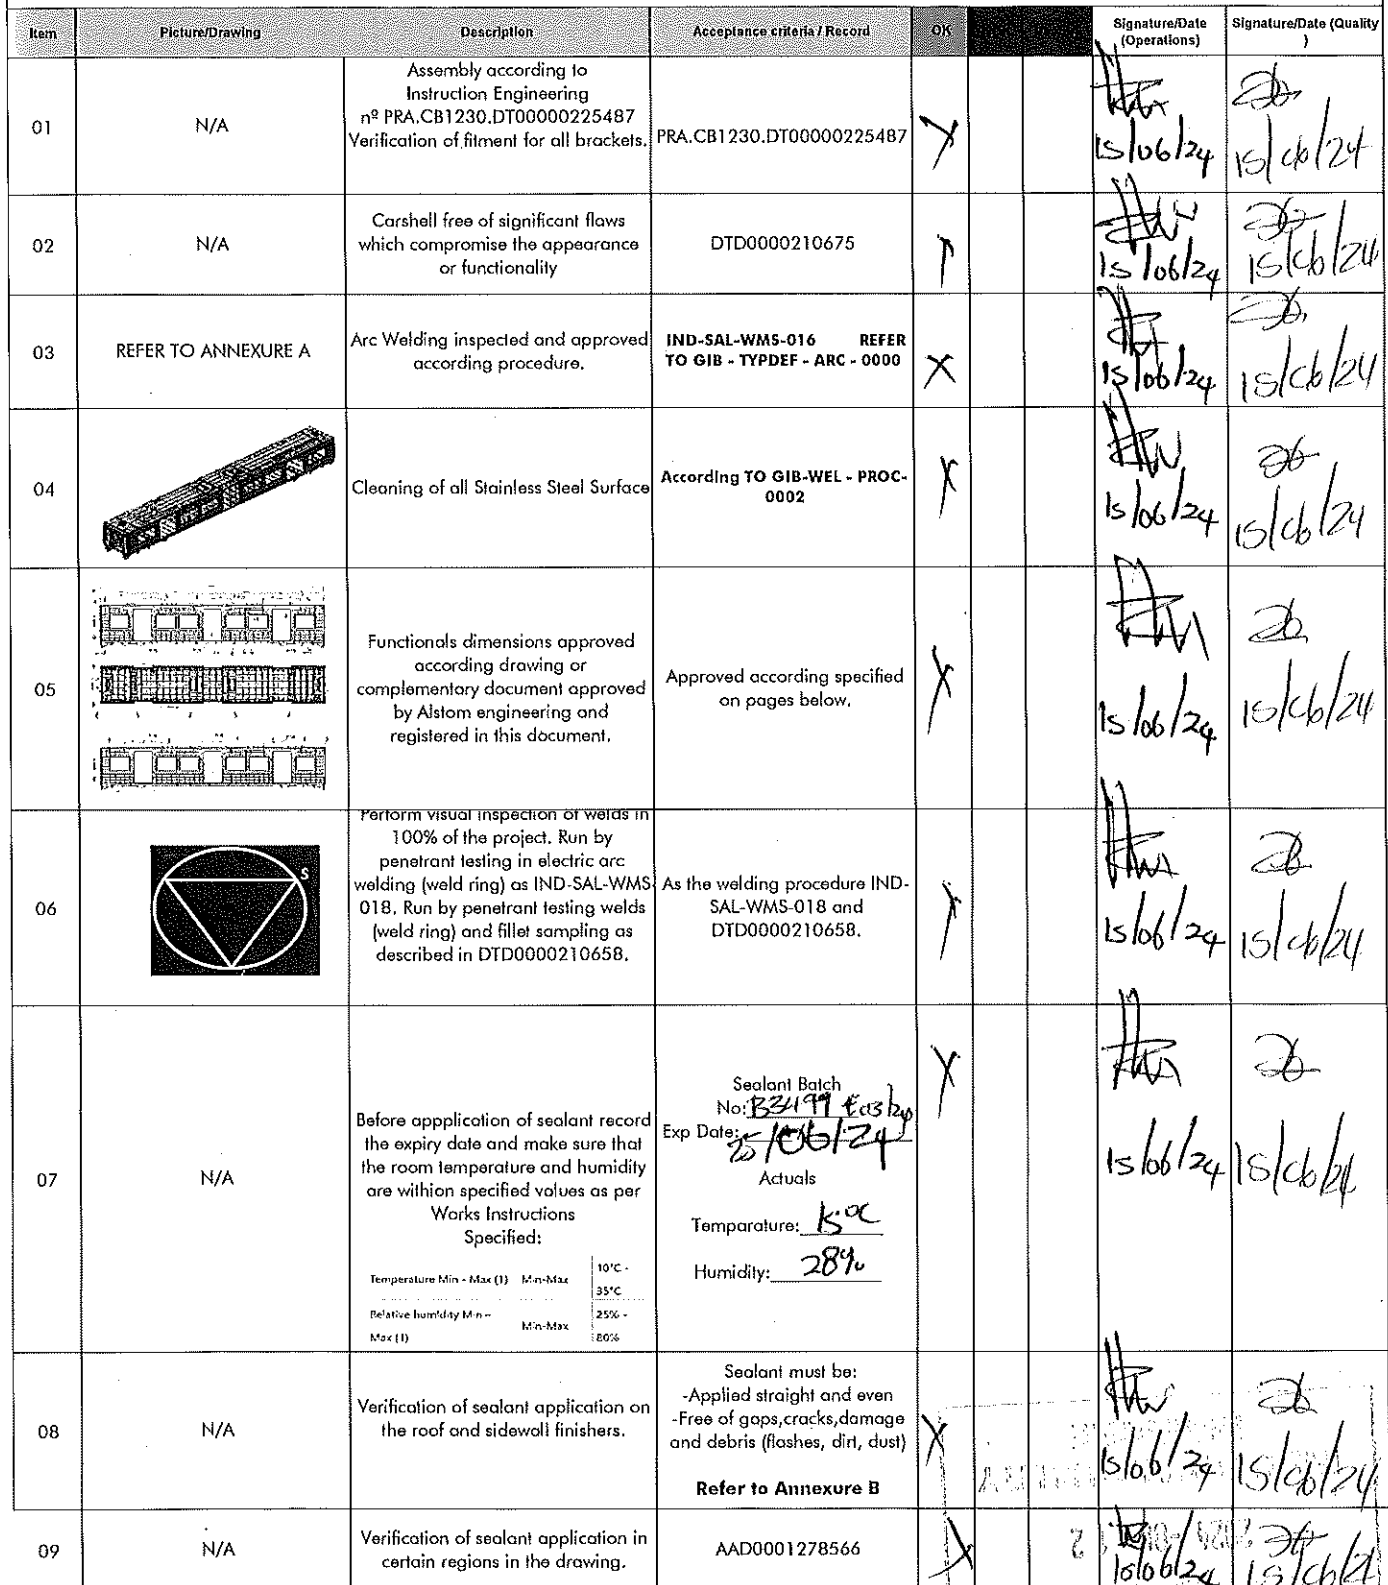 Item Picture/Drawing Description Acceptance criteria / Record OK Signature/Date (Operations) Signature/Date (Quality )
01
N/A
Assembly according to
Instruction Engineering
nº PRA.CB1230.DT00000225487
Verification of fitment for all brackets.
PRA.CB1230.DT00000225487
X
15/06/24
15/06/24
02
N/A
Carshell free of significant flaws
which compromise the appearance
or functionality
DTD0000210675
15/06/24
15/06/24
03
REFER TO ANNEXURE A
Arc Welding inspected and approved
according procedure.
IND-SAL-WMS-016 REFER
TO GIB - TYPDEF - ARC - 0000
X
15/06/24
15/06/24
04
Cleaning of all Stainless Steel Surface
According TO GIB-WEL - PROC-
0002
X
15/06/24
15/06/24
05
Functionals dimensions approved
according drawing or
complementary document approved
by Alstom engineering and
registered in this document.
Approved according specified
on pages below.
X
15/06/24
15/06/24
06
S
Perform visual inspection of welds in
100% of the project. Run by
penetrant testing in electric arc
welding (weld ring) as IND-SAL-WMS
018. Run by penetrant testing welds
(weld ring) and fillet sampling as
described in DTD0000210658.
As the welding procedure IND-
SAL-WMS-018 and
DTD0000210658.
X
15/06/24
15/06/24
07
N/A
Before appplication of sealant record
the expiry date and make sure that
the room temperature and humidity
are withion specified values as per
Works Instructions
Specified:
Temperature Min - Max (1) Min-Max 10°C -
35°C
Relative humidity Min –
Max (1) Min-Max 25% -
80%
Sealant Batch
No: B3499
Exp Date: 25/06/24
Actuals
Temparature: 15°C
Humidity: 28%
X
15/06/24
15/06/24
08
N/A
Verification of sealant application on
the roof and sidewall finishers.
Sealant must be:
-Applied straight and even
-Free of gaps,cracks,damage
and debris (flashes, dirt, dust)
Refer to Annexure B
X
15/06/24
15/06/24
09
N/A
Verification of sealant application in
certain regions in the drawing.
AAD0001278566
X
15/06/24
15/06/24